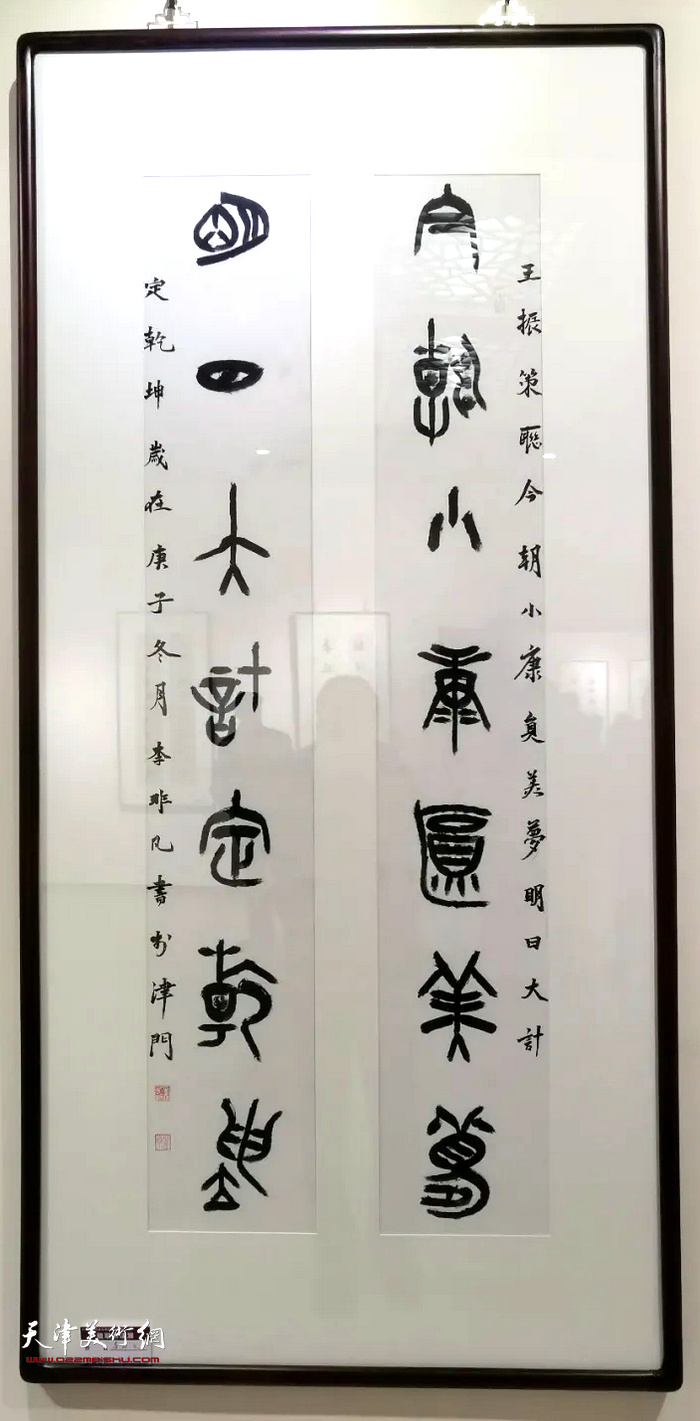 王振策聯今朝小康員美夢明日大計
今朝小康圓美夢
明日大計定乾坤
定乾坤歲在庚子冬月李非凡書於津門
天津美術網
www.022meishu.com